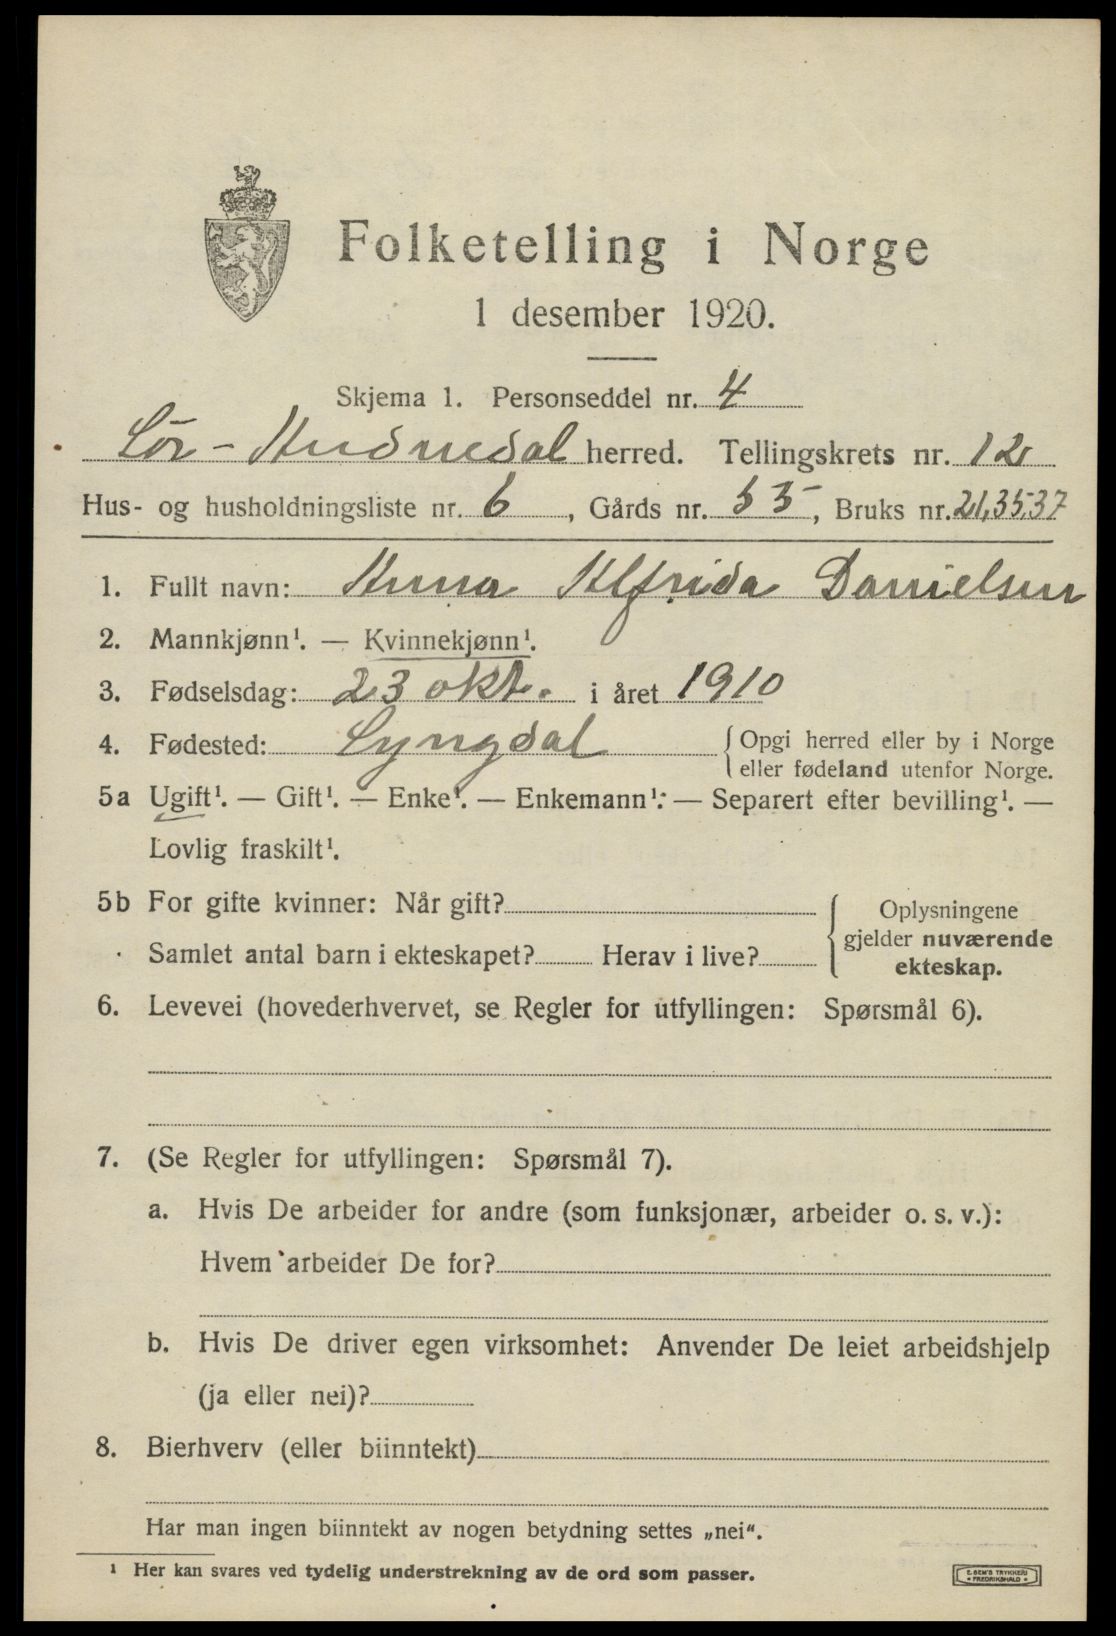 Folketelling i Norge
1 desember 1920.
Skjema 1. Personseddel nr. 4
Sör-Audnedal herred. Tellingskrets nr. 12
Hus- og husholdningsliste nr. 6, Gårds nr. 53, Bruks nr. 21,35,37
1. Fullt navn: Anna Alfrida Danielsen
2. Mannkjønn¹. — Kvinnekjønn¹.
3. Fødselsdag: 23 okt. i året 1910
4. Fødested: Lyngdal {Opgi herred eller by i Norge
eller fødeland utenfor Norge.
5a Ugift¹. — Gift¹. — Enke¹. — Enkemann¹. — Separert efter bevilling¹. —
Lovlig fraskilt¹.
5b For gifte kvinner: Når gift?
Samlet antal barn i ekteskapet? Herav i live?
{Oplysningene
gjelder nuværende
ekteskap.
6. Levevei (hovederhvervet, se Regler for utfyllingen: Spørsmål 6).
7. (Se Regler for utfyllingen: Spørsmål 7).
a. Hvis De arbeider for andre (som funksjonær, arbeider o. s. v.):
Hvem arbeider De for?
b. Hvis De driver egen virksomhet: Anvender De leiet arbeidshjelp
(ja eller nei)?
8. Bierhverv (eller biinntekt)
Har man ingen biinntekt av nogen betydning settes „nei“.
¹ Her kan svares ved tydelig understrekning av de ord som passer.
E. SEM'S TRYKKERI
FREDRIKSHALD